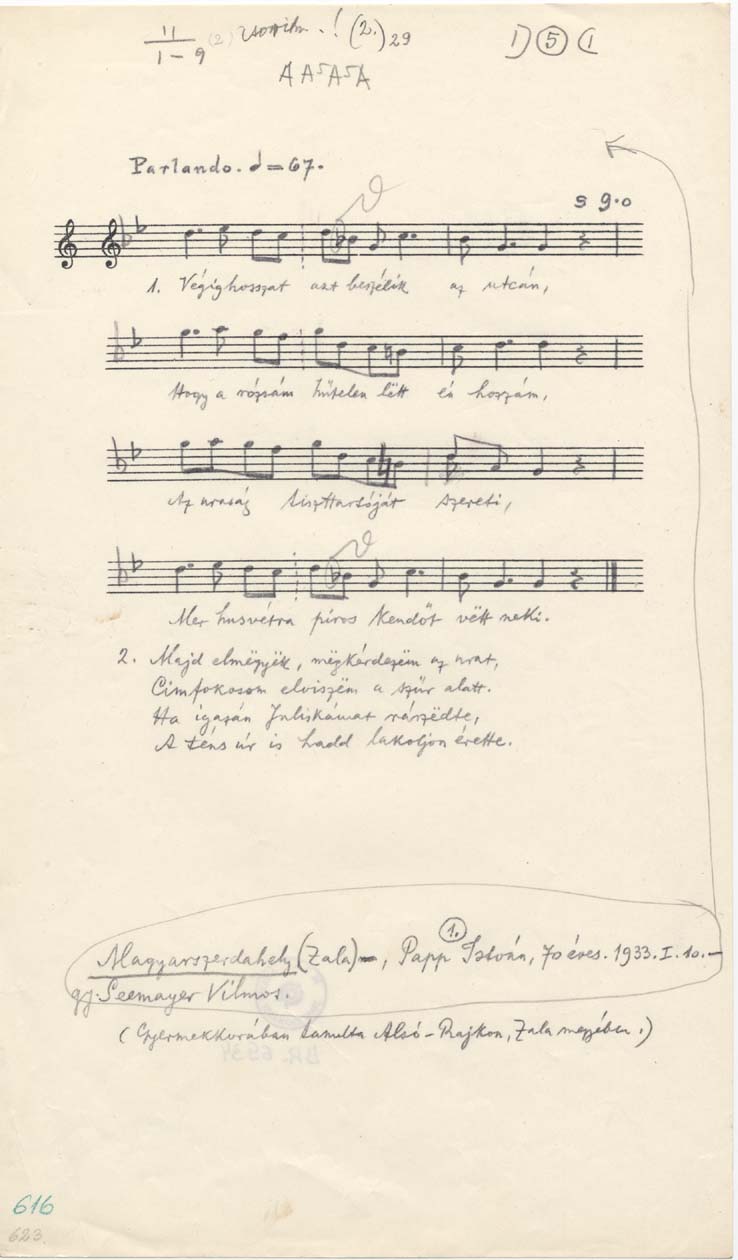 11
1-9 (2) (2.) 29
1) 5 (1
A A5 A5 A
Parlando. = 67.
s 9.o
1. Végighosszat azt beszélik az utcán,
Hogy a rózsám hűtelen lëtt én hozzám,
Az uraság tiszttartóját szereti,
Mer husvétra piros kendőt vëtt neki.
2. Majd elmëgyëk, mëgkérdezëm az urat,
Cimfokosom elviszëm a szűr alatt.
Ha igazán Juliskámat rászëdte,
A téns úr is hadd lakoljon érette.
1.
Magyarszerdahely (Zala)-, Papp István, 70 éves. 1933. I. 10.-
gy. Seemayer Vilmos.
(Gyermekkorában tanulta Alsó-Rajkon, Zala megyében.)
616
623.